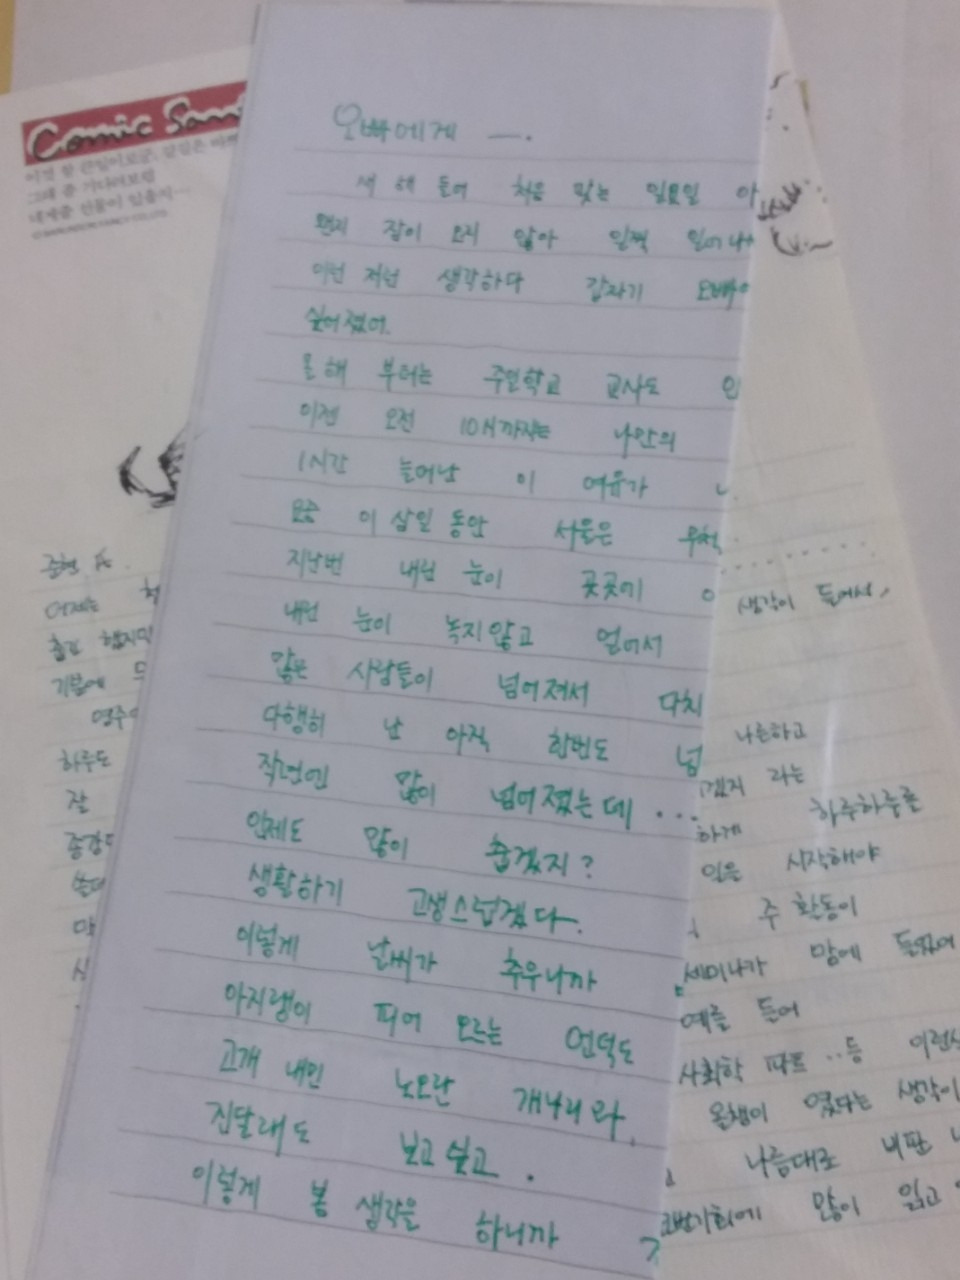 오빠에게 —.
새 해 들어 처음 맞는 일요일 아
왠지 잠이 오지 않아 일찍 일어나
이런 저런 생각하다 갑자기 오빠
싶어졌어.
올해 부터는 주일학교 교사도 안
이젠 오전 10시까지는 나만의
1시간 늘어난 이 여유가
요즘 이삼일 동안 서울은 무척
지난번 내린 눈이 곳곳에
내린 눈이 녹지않고 얼어서
많은 사람들이 넘어져서 다치
다행히 난 아직 한번도 넘
작년엔 많이 넘어졌는데 ...
인제도 많이 춥겠지?
생활하기 고생스럽겠다.
이렇게 날씨가 추우니까
아지랭이 피어 오르는 언덕도
고개 내민 노오란 개나리와,
진달래도 보고싶고.
이렇게 봄 생각을 하니까
Comic
그대 좀 기다려보렴
어제는
기분에
하루도
잘
생각이 들어서,
나른하고
겠지 라는
하게 하루하루를
일은 시작해야
주 활동이
세미나가 맘에 들었어
예를 들어
사회학 파트 ..등 이런식
올챙이 였다는 생각이
나름대로 비판
이번기회에 많이 읽고